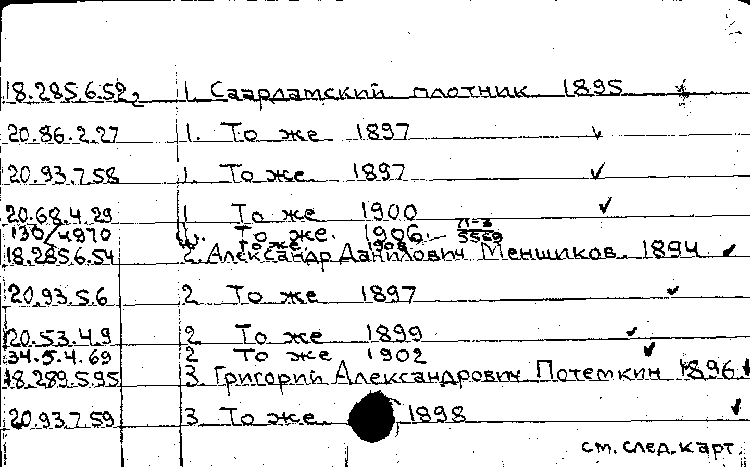 18.285.6.52 1. Саарламский плотник 1895
20.86.2.27 1. То же 1897
20.93.7.58 1. То же 1897
20.68.4.29 1 То же 1900
130/4970 То же. 1906
То же. 5559
18.285.6.54 2. Александр Данилович Меншиков. 1894
20.93.5.6 2 То же 1897
20.53.4.9 2 То же 1899
34.5.4.69 2 То же 1902
18.289.5.95 3. Григорий Александрович Потемкин 1896
20.93.7.59 3. То же. 1898
см. след. карт.